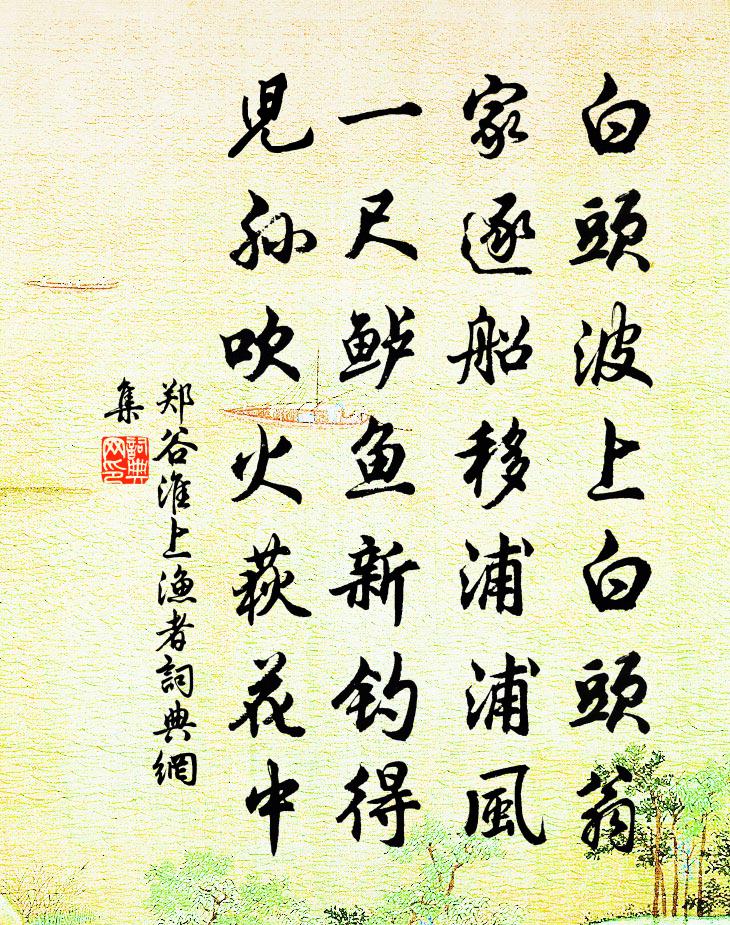 白頭波上白頭翁
家逐船移浦浦風
一尺鲈鱼新钓得
児孙吹火荻花中
郑谷淮上渔者詞典網
集
詞典
网印